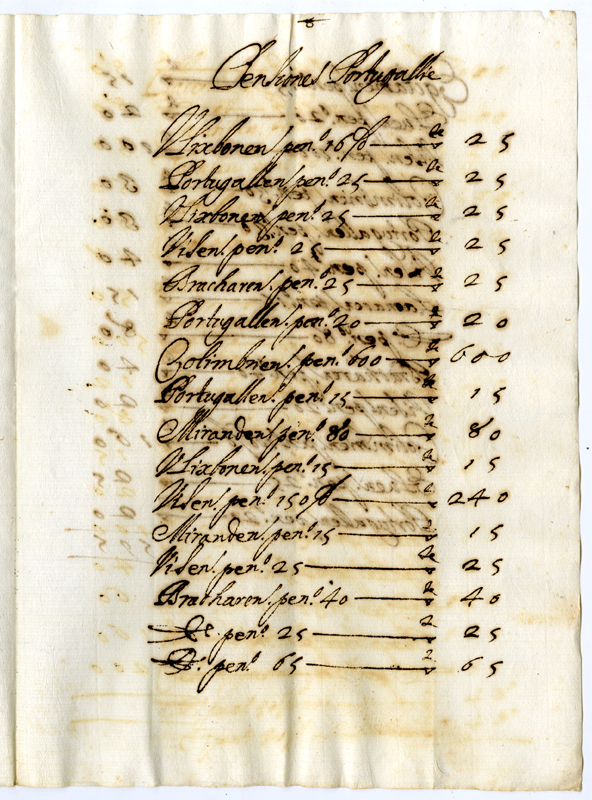 Pensiones Portugallie
Vlixbonen. pen.º 16 ▽ 25
Portugallen. pen.º 25 ▽ 25
Vlixbonen. pen.º 25 ▽ 25
Visen. pen.º 25 ▽ 25
Bracharen. pen.º 25 ▽ 25
Portugallen. pen.º 20 ▽ 20
Colimbrien. pen.º 600 ▽ 600
Portugallen. pen.º 15 ▽ 15
Miranden. pen.º 80 ▽ 80
Vlixbonen. pen.º 15 ▽ 15
Visen. pen.º 150 ▽ 240
Miranden. pen.º 15 ▽ 15
Visen. pen.º 25 ▽ 25
Bracharen. pen.º 40 ▽ 40
pen.º 25 ▽ 25
pen.º 65 ▽ 65